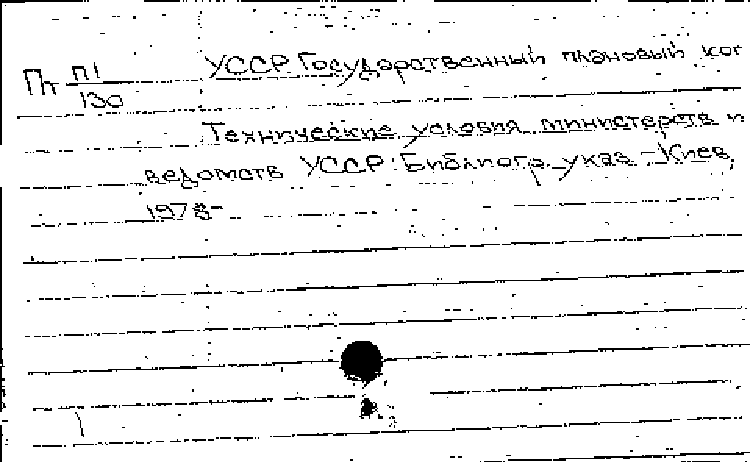 Пт П1/130 УССР. Государственный плановый ком
Технические условия министерств и
ведомств УССР: Библиогр. указ.-Киев,
1978-